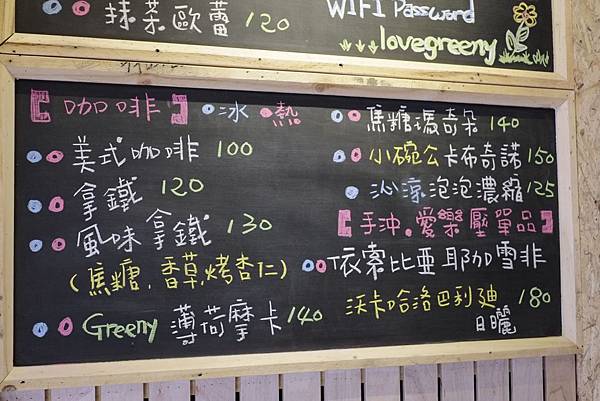 抹茶歐蕾 120
WIFI Password
lovegreeny
【咖啡】 冰 熱
美式咖啡 100
拿鐵 120
風味拿鐵 130
(焦糖.香草.烤杏仁)
Greeny 薄荷摩卡 140
焦糖瑪奇朵 140
小碗公卡布奇諾 150
沁涼泡泡濃縮 125
【手沖.愛樂壓單品】
衣索比亞 耶加雪非
沃卡哈洛巴利迪 180
日曬